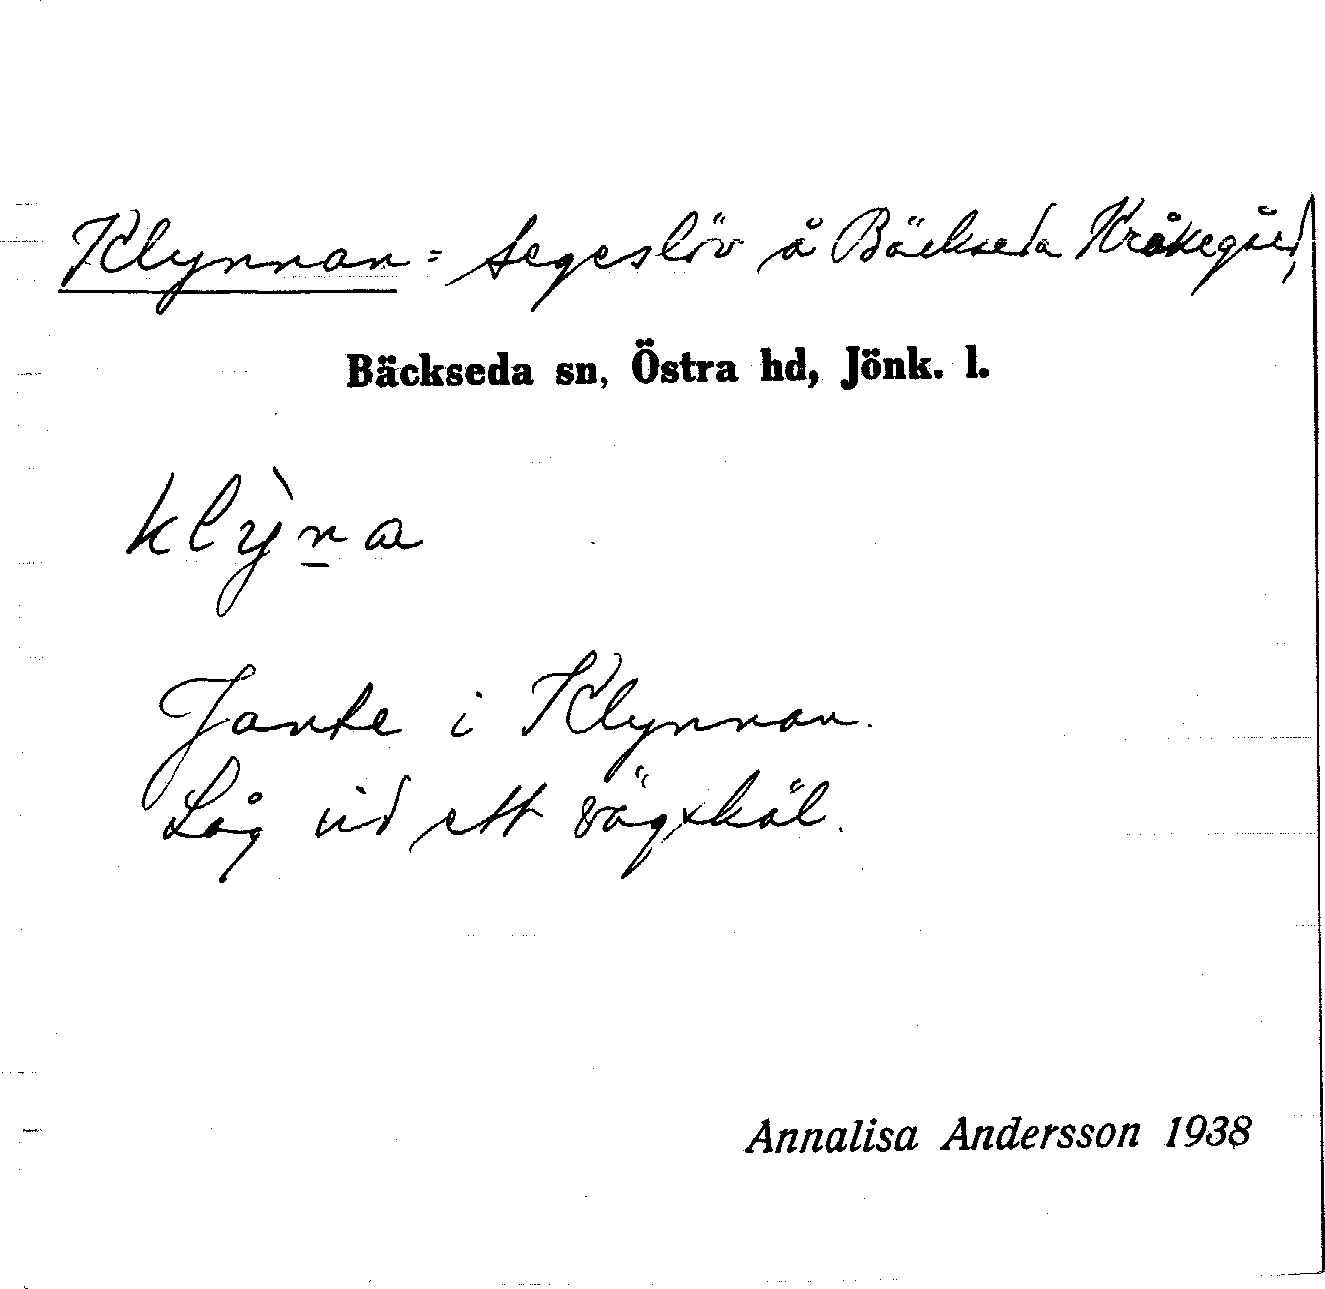 Klynnan = Segeslöv å Bäckseda Kråkegård,
Bäckseda sn, Östra hd, Jönk. l.
klỳn̲a
Jante i Klynnan.
Låg vid ett vägskäl.
Annalisa Andersson 1938